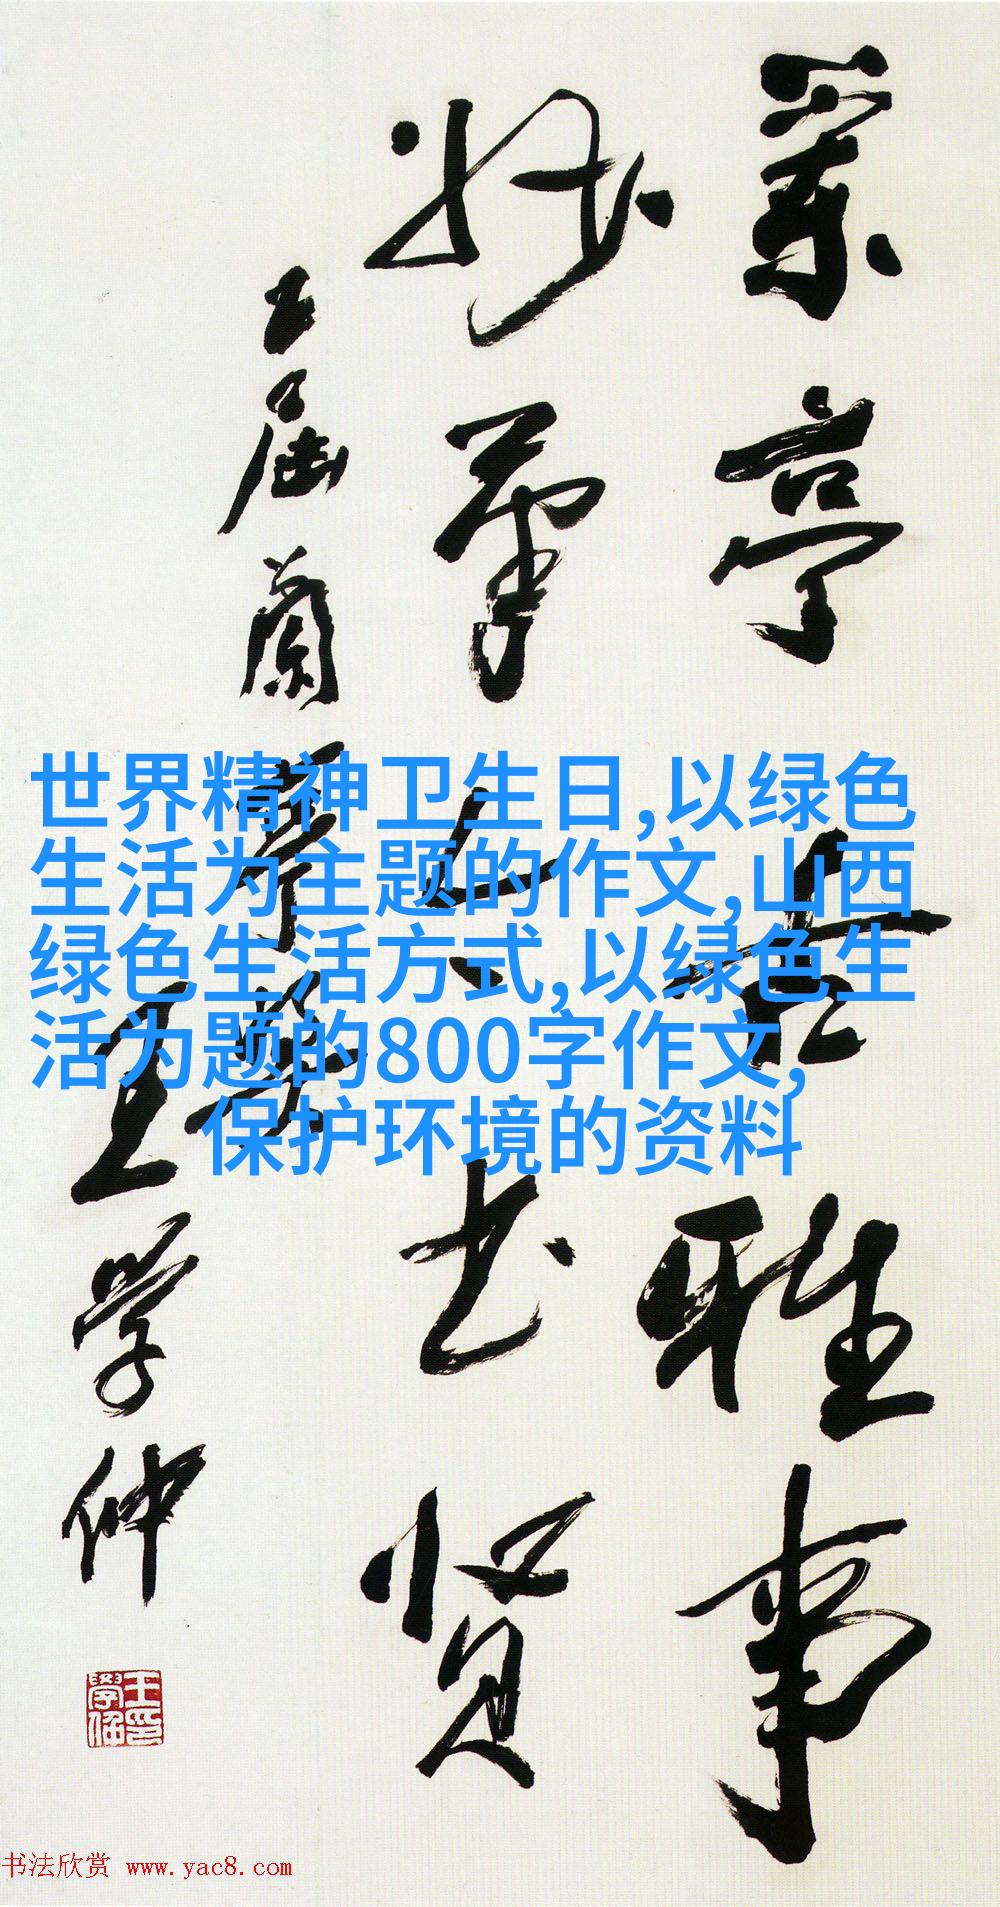 兰亭
雅事
妙笔
书贤
五届兰亭奖
王学仲
世界精神卫生日,以绿色
生活为主题的作文,山西
绿色生活方式,以绿色生
活为题的800字作文,
保护环境的资料
书法欣赏 www.yac8.com